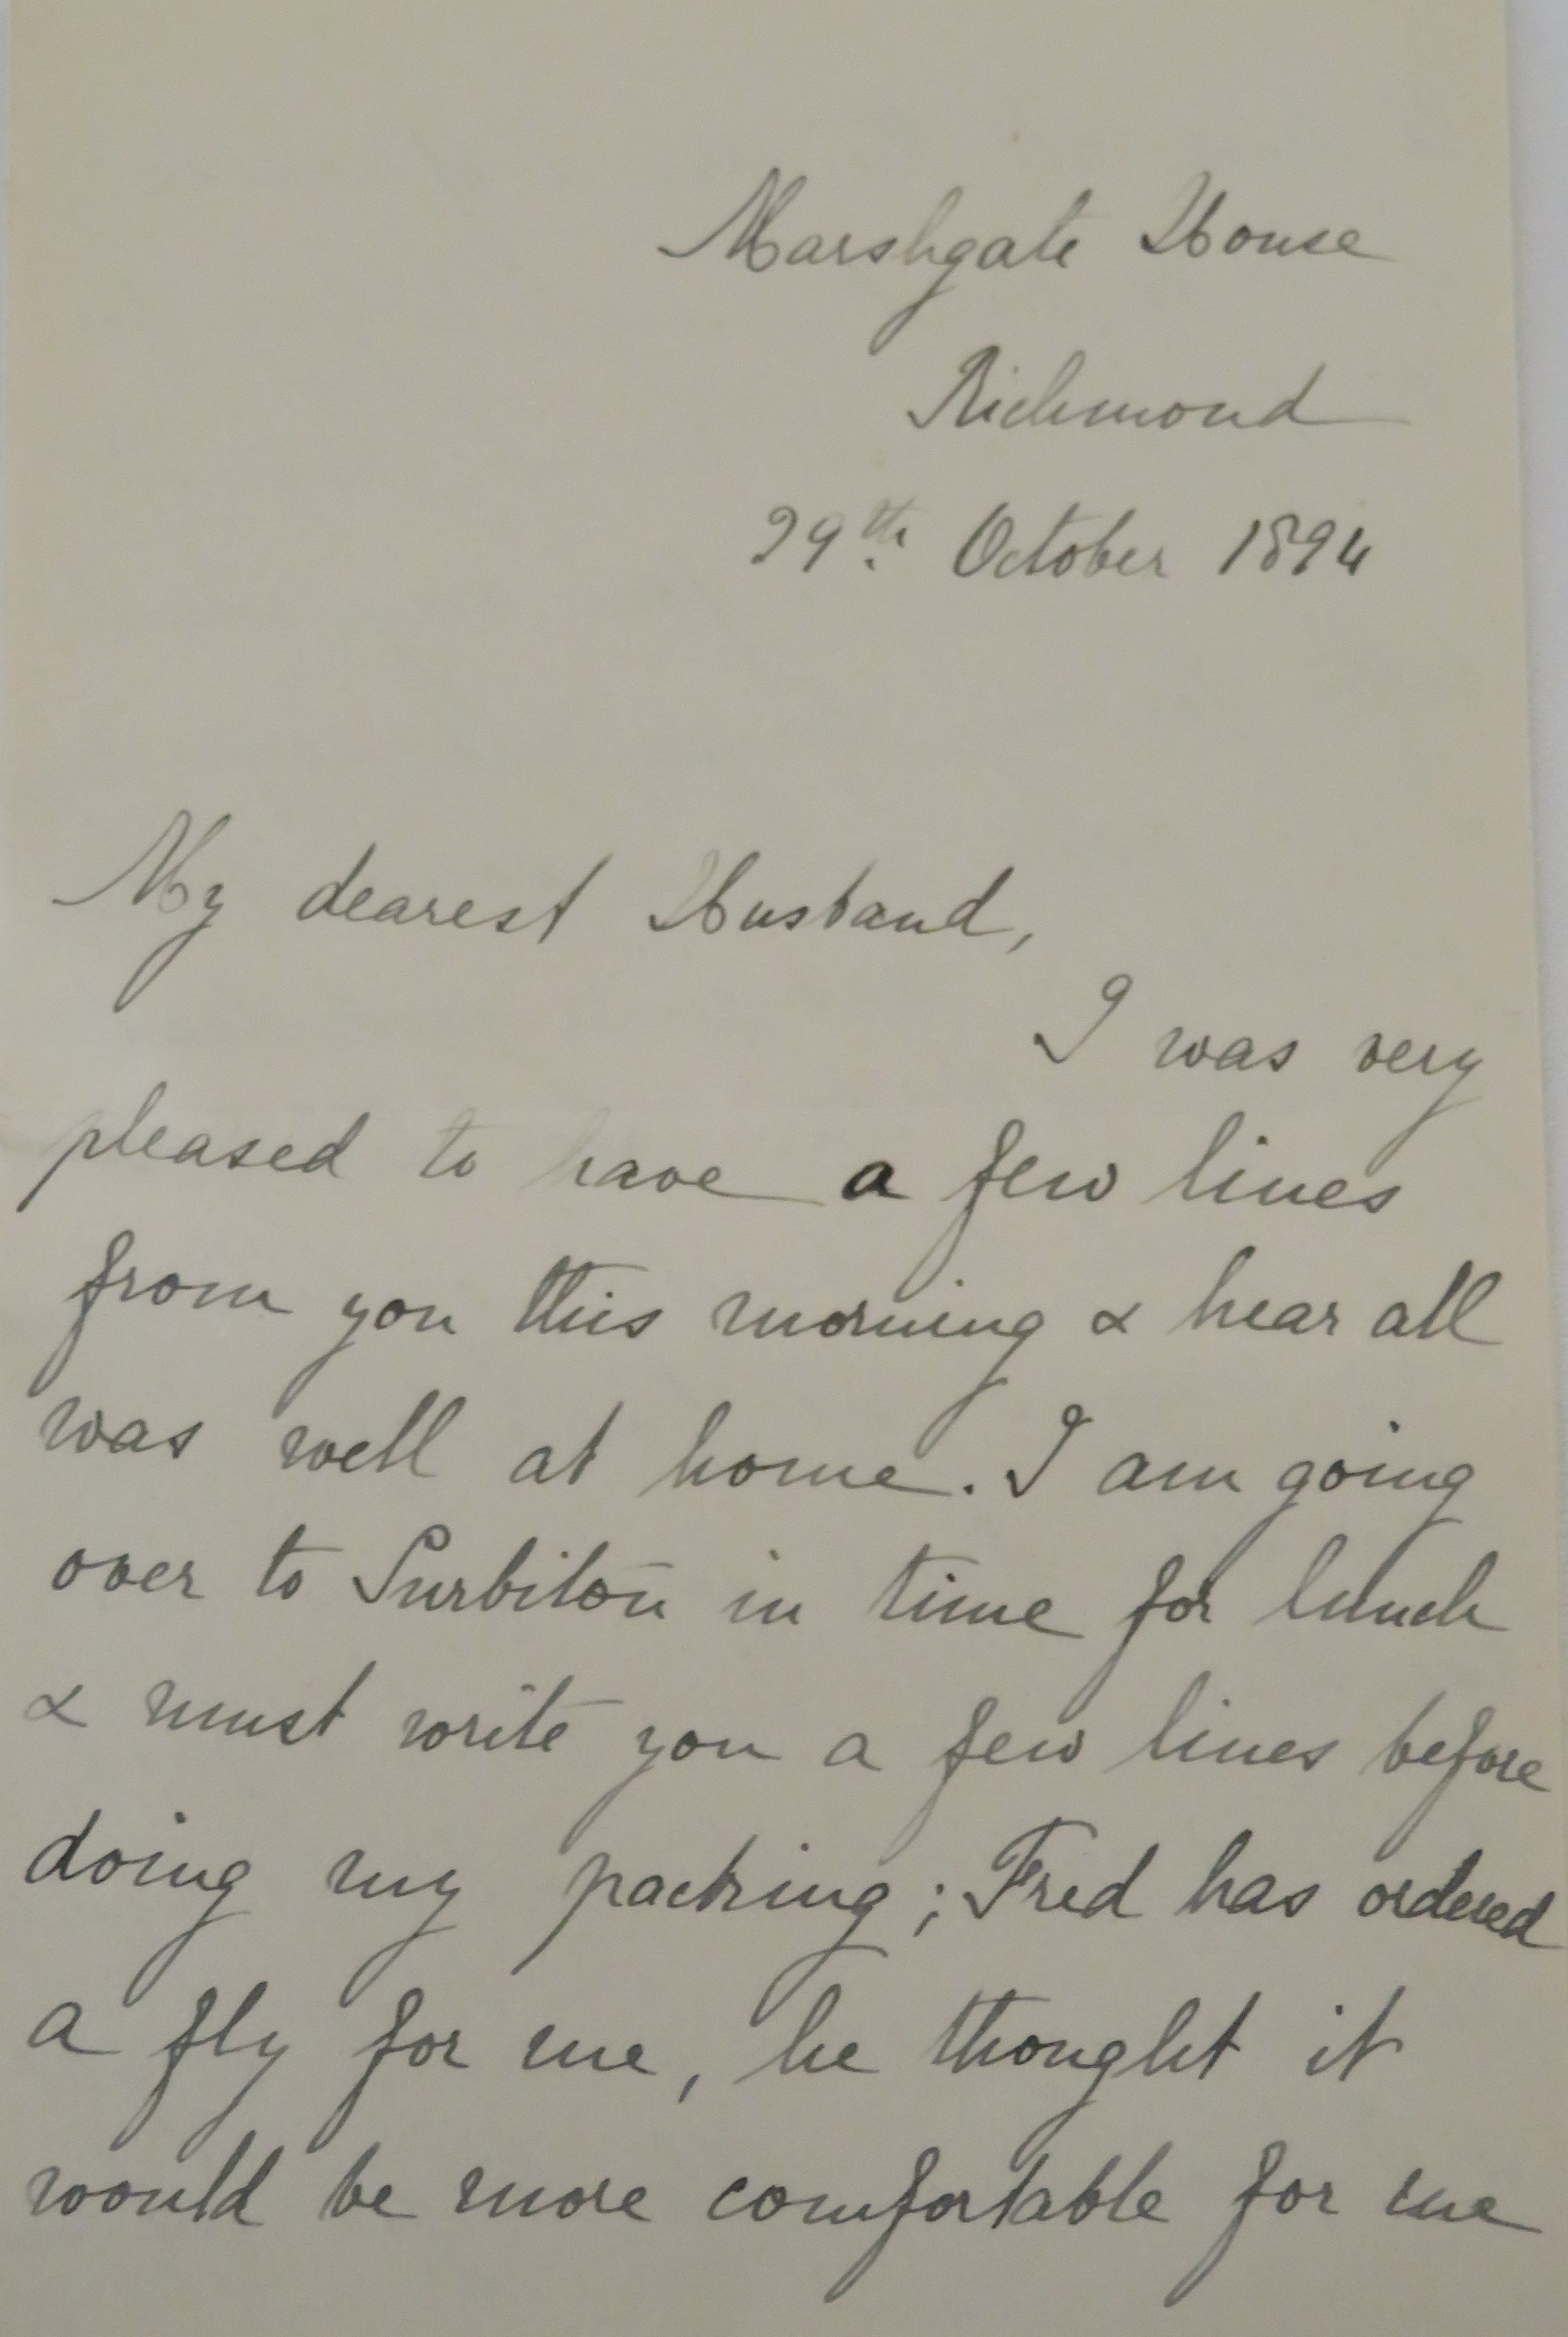 Marshgate House
Richmond
29th. October 1894
My dearest Husband,
I was very
pleased to have a few lines
from you this morning & hear all
was well at home. I am going
over to Surbiton in time for lunch
& must write you a few lines before
doing my packing; Fred has ordered
a fly for me, he thought it
would be more comfortable for me